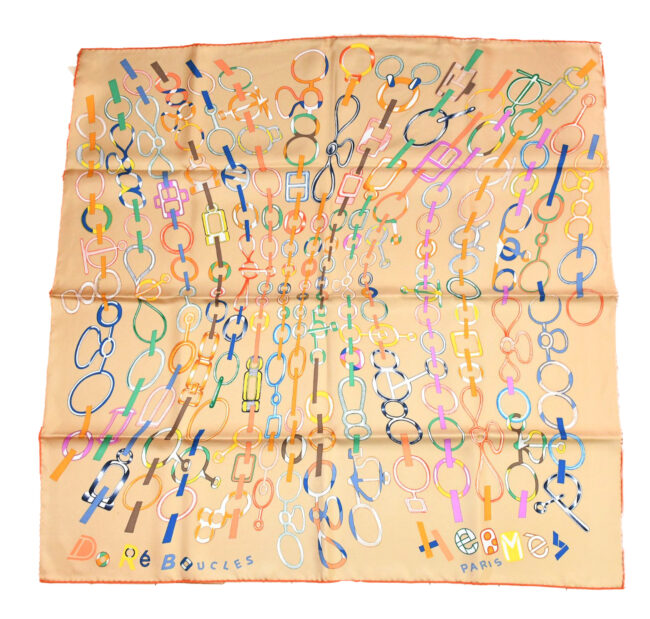 Do Ré BOUCLES
HERMèS
PARIS